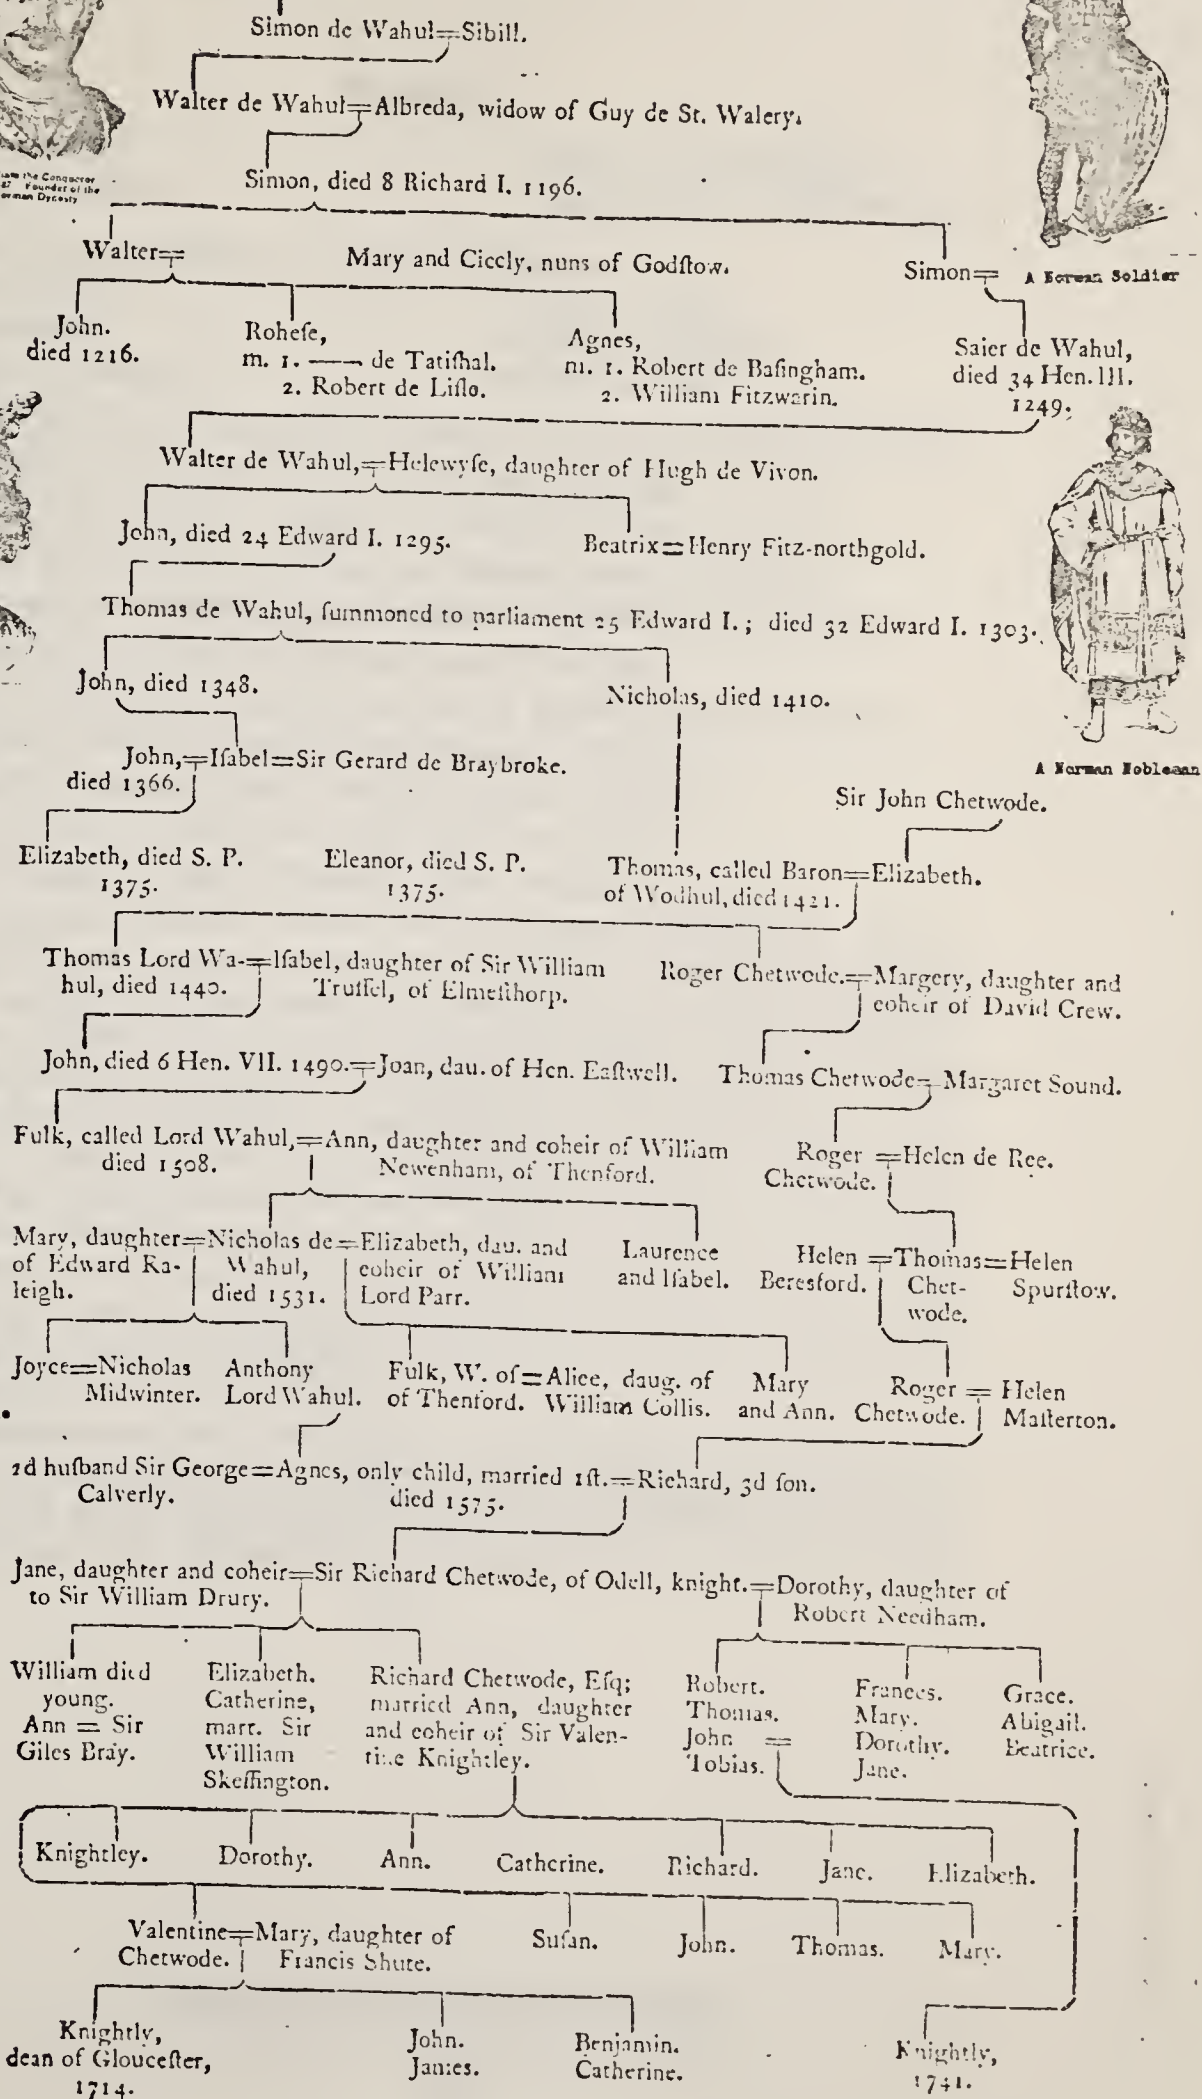 Simon de Wahul=Sibill.
Walter de Wahul=Albreda, widow of Guy de St. Walery.
the Conqueror
Founder of the
Dynasty
Simon, died 8 Richard I. 1196.
Walter=
Mary and Cicely, nuns of Godſtow.
Simon=
A Norman Soldier
John.
died 1216.
Roheſe,
m. 1. —— de Tatiſhal.
2. Robert de Liſlo.
Agnes,
m. 1. Robert de Baſingham.
2. William Fitzwarin.
Saier de Wahul,
died 34 Hen. III.
1249.
Walter de Wahul,=Helewyſe, daughter of Hugh de Vivon.
John, died 24 Edward I. 1295.
Beatrix=Henry Fitz-northgold.
Thomas de Wahul, ſummoned to parliament 25 Edward I.; died 32 Edward I. 1303.
John, died 1348.
Nicholas, died 1410.
John,=Iſabel=Sir Gerard de Braybroke.
died 1366.
A Norman Nobleman
Sir John Chetwode.
Elizabeth, died S. P.
1375.
Eleanor, died S. P.
1375.
Thomas, called Baron=Elizabeth.
of Wodhul, died 1421.
Thomas Lord Wa-=Iſabel, daughter of Sir William
hul, died 1440. Truſſel, of Elmeſthorp.
Roger Chetwode.=Margery, daughter and
coheir of David Crew.
John, died 6 Hen. VII. 1490.=Joan, dau. of Hen. Eaſtwell.
Thomas Chetwode=Margaret Sound.
Fulk, called Lord Wahul,=Ann, daughter and coheir of William
died 1508. Newenham, of Thenford.
Roger =Helen de Ree.
Chetwode.
Mary, daughter=Nicholas de=Elizabeth, dau. and
of Edward Ra- Wahul, coheir of William
leigh. died 1531. Lord Parr.
Laurence
and Iſabel.
Helen =Thomas=Helen
Beresford. Chet- Spurſtow.
wode.
Joyce=Nicholas
Midwinter.
Anthony
Lord Wahul.
Fulk, W. of=Alice, daug. of
of Thenford. William Collis.
Mary
and Ann.
Roger = Helen
Chetwode. Maſterton.
2d huſband Sir George=Agnes, only child, married 1ſt.=Richard, 3d ſon.
Calverly. died 1575.
Jane, daughter and coheir=Sir Richard Chetwode, of Odell, knight.=Dorothy, daughter of
to Sir William Drury. Robert Needham.
William died
young.
Ann = Sir
Giles Bray.
Elizabeth.
Catherine,
marr. Sir
William
Skeffington.
Richard Chetwode, Eſq;
married Ann, daughter
and coheir of Sir Valen-
tine Knightley.
Robert.
Thomas.
John =
Tobias.
Frances.
Mary.
Dorothy.
Jane.
Grace.
Abigail.
Beatrice.
Knightley. Dorothy. Ann. Catherine. Richard. Jane. Elizabeth.
Valentine=Mary, daughter of
Chetwode. Francis Shute.
Suſan. John. Thomas. Mary.
Knightly,
dean of Glouceſter,
1714.
John.
James.
Benjamin.
Catherine.
Knightly,
1741.